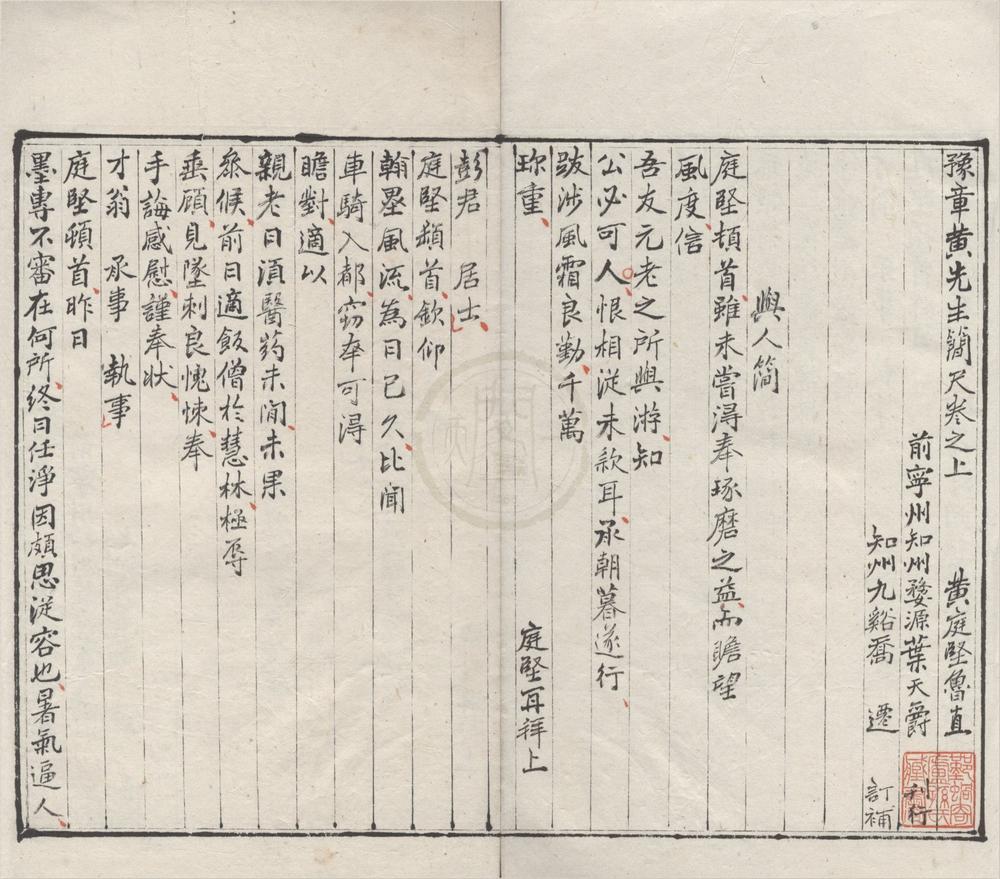 豫章黄先生簡尺卷之上
黄庭堅魯直
前寧州知州婺源葉天爵 刊行
知州九谿喬 遷 訂補
與人簡
庭堅頓首雖未嘗淂奉琢磨之益而瞻望
風度信
吾友元老之所與游知
公必可人恨相従未款耳承朝暮遂行
跋涉風霜良勤千萬
珎重
庭堅再拜上
彭君 居士
庭堅頓首欽仰
翰墨風流為日已久比聞
車騎入都窃幸可淂
瞻對適以
親老日湏醫药未间未果
叅候前日適飯僧於慧林極辱
垂顧見墜刺良愧悚奉
手誨感慰謹奉状
才翁 承事 執事
庭堅頓首昨日
墨專不審在何所終日任淨因頗思従容也暑氣逼人